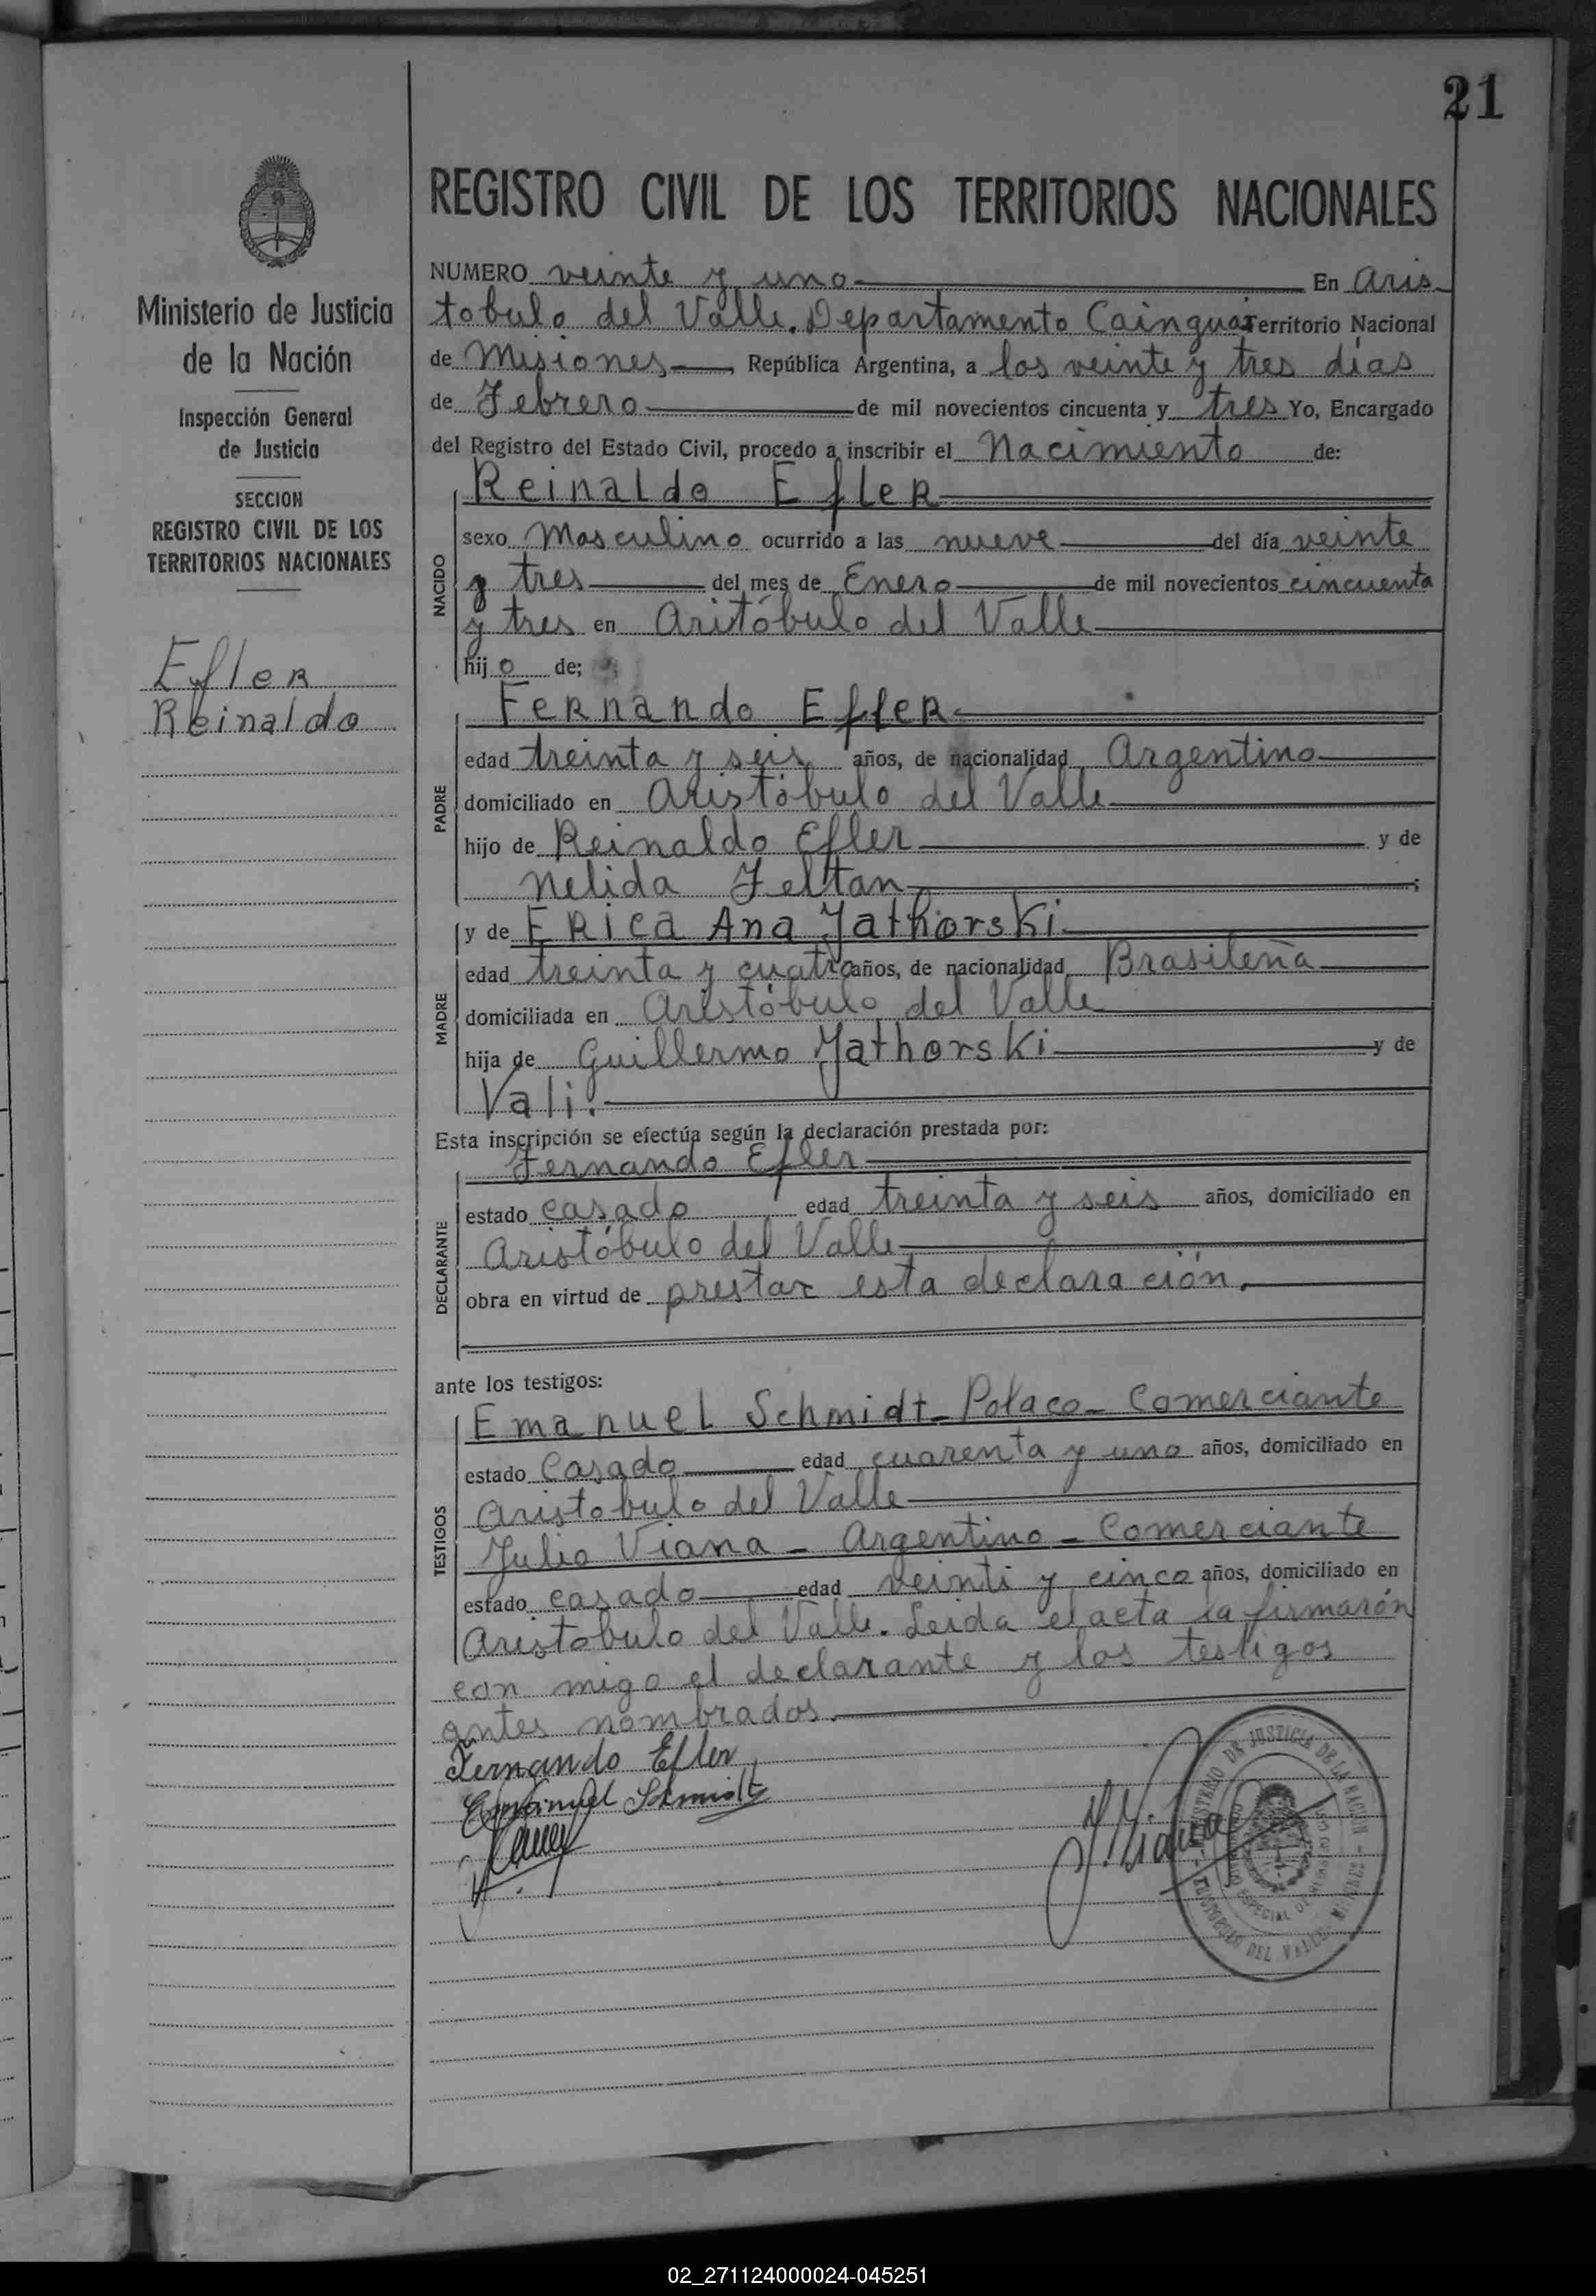 21
REGISTRO CIVIL DE LOS TERRITORIOS NACIONALES
Ministerio de Justicia
de la Nación
Inspección General
de Justicia
SECCION
REGISTRO CIVIL DE LOS
TERRITORIOS NACIONALES
Efler
Reinaldo
NUMERO veinte y uno En Aris
tobulo del Valle. Departamento Cainguas Territorio Nacional
de Misiones República Argentina, a los veinte y tres días
de Febrero de mil novecientos cincuenta y tres Yo, Encargado
del Registro del Estado Civil, procedo a inscribir el Nacimiento de:
NACIDO
Reinaldo Efler
sexo Masculino ocurrido a las nueve del día veinte
y tres del mes de Enero de mil novecientos cincuenta
y tres en Aritóbulo del Valle
hijo de;
PADRE
Fernando Efler
edad treinta y seis años, de nacionalidad Argentino
domiciliado en Aristóbulo del Valle
hijo de Reinaldo Efler y de
Nelida Feltan;
MADRE
y de Erica Ana Jathorski
edad treinta y cuatro años, de nacionalidad Brasileña
domiciliada en Aristóbulo del Valle
hija de Guillermo Jathorski y de
Vali.
Esta inscripción se efectúa según la declaración prestada por:
DECLARANTE
Fernando Efler
estado casado edad treinta y seis años, domiciliado en
Aristóbulo del Valle
obra en virtud de prestar esta declaración.
ante los testigos:
TESTIGOS
Emanuel Schmidt - Polaco - Comerciante
estado Casado edad cuarenta y uno años, domiciliado en
Aristobulo del Valle
Julio Viana - Argentino - Comerciante
estado casado edad veinti y cinco años, domiciliado en
Aristobulo del Valle. Leida el acta la firmarón
con migo el declarante y los testigos
antes nombrados.
Fernando Efler
Emanuel Schmidt
J. Viana
MINISTERIO DE JUSTICIA DE LA NACION
ARISTOBULO DEL VALLE
02_271124000024-045251